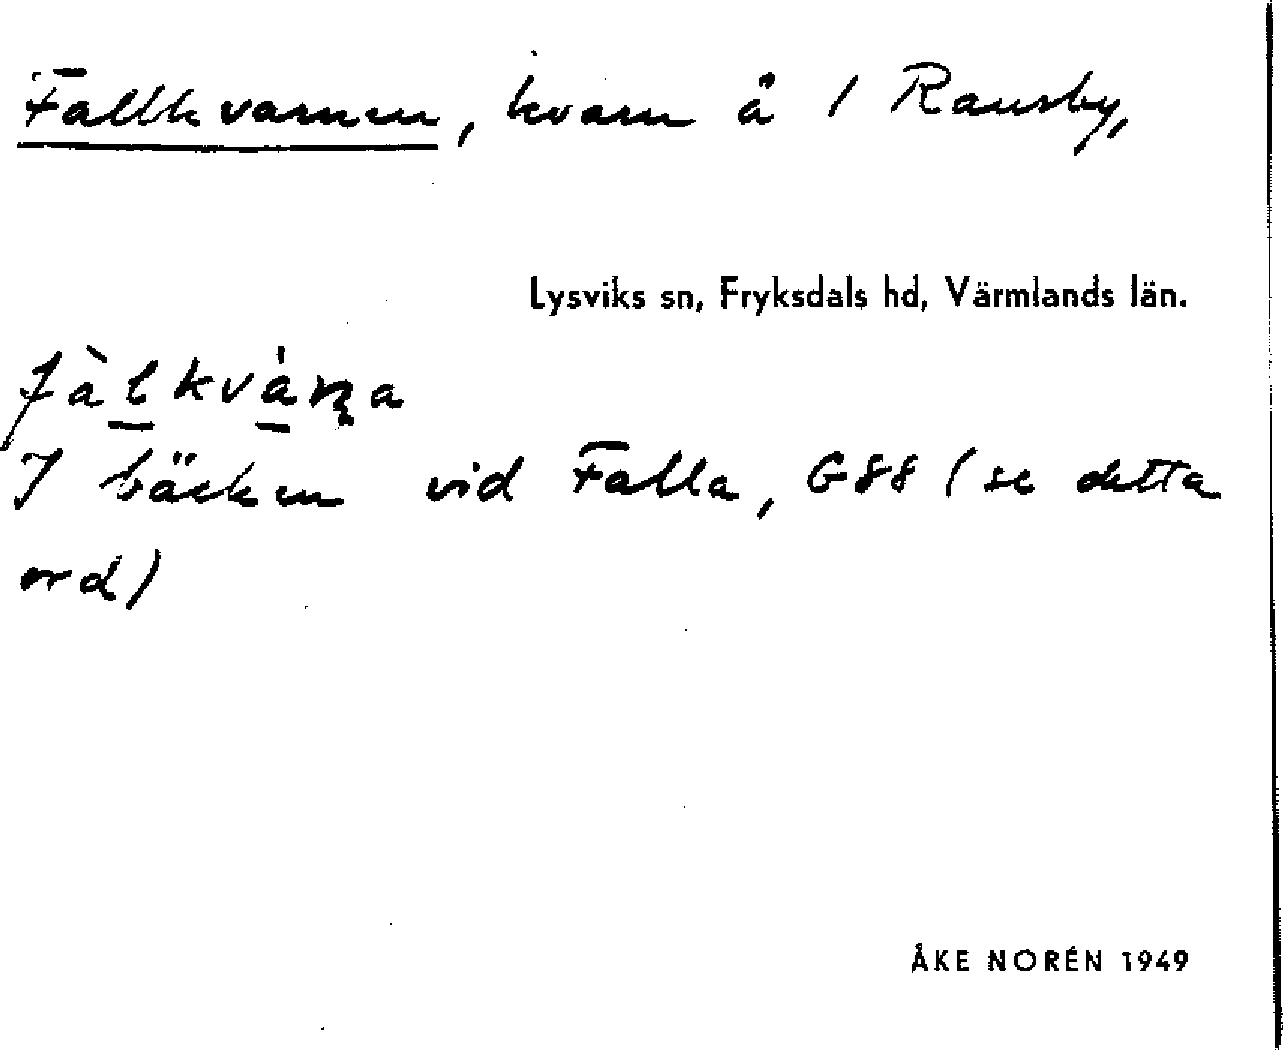 Fallkvarnen, kvarn å 1 Ransby,
Lysviks sn, Fryksdals hd, Värmlands län.
I bäcken vid Falla, G88 (se detta
ord)
ÅKE NORÉN 1949